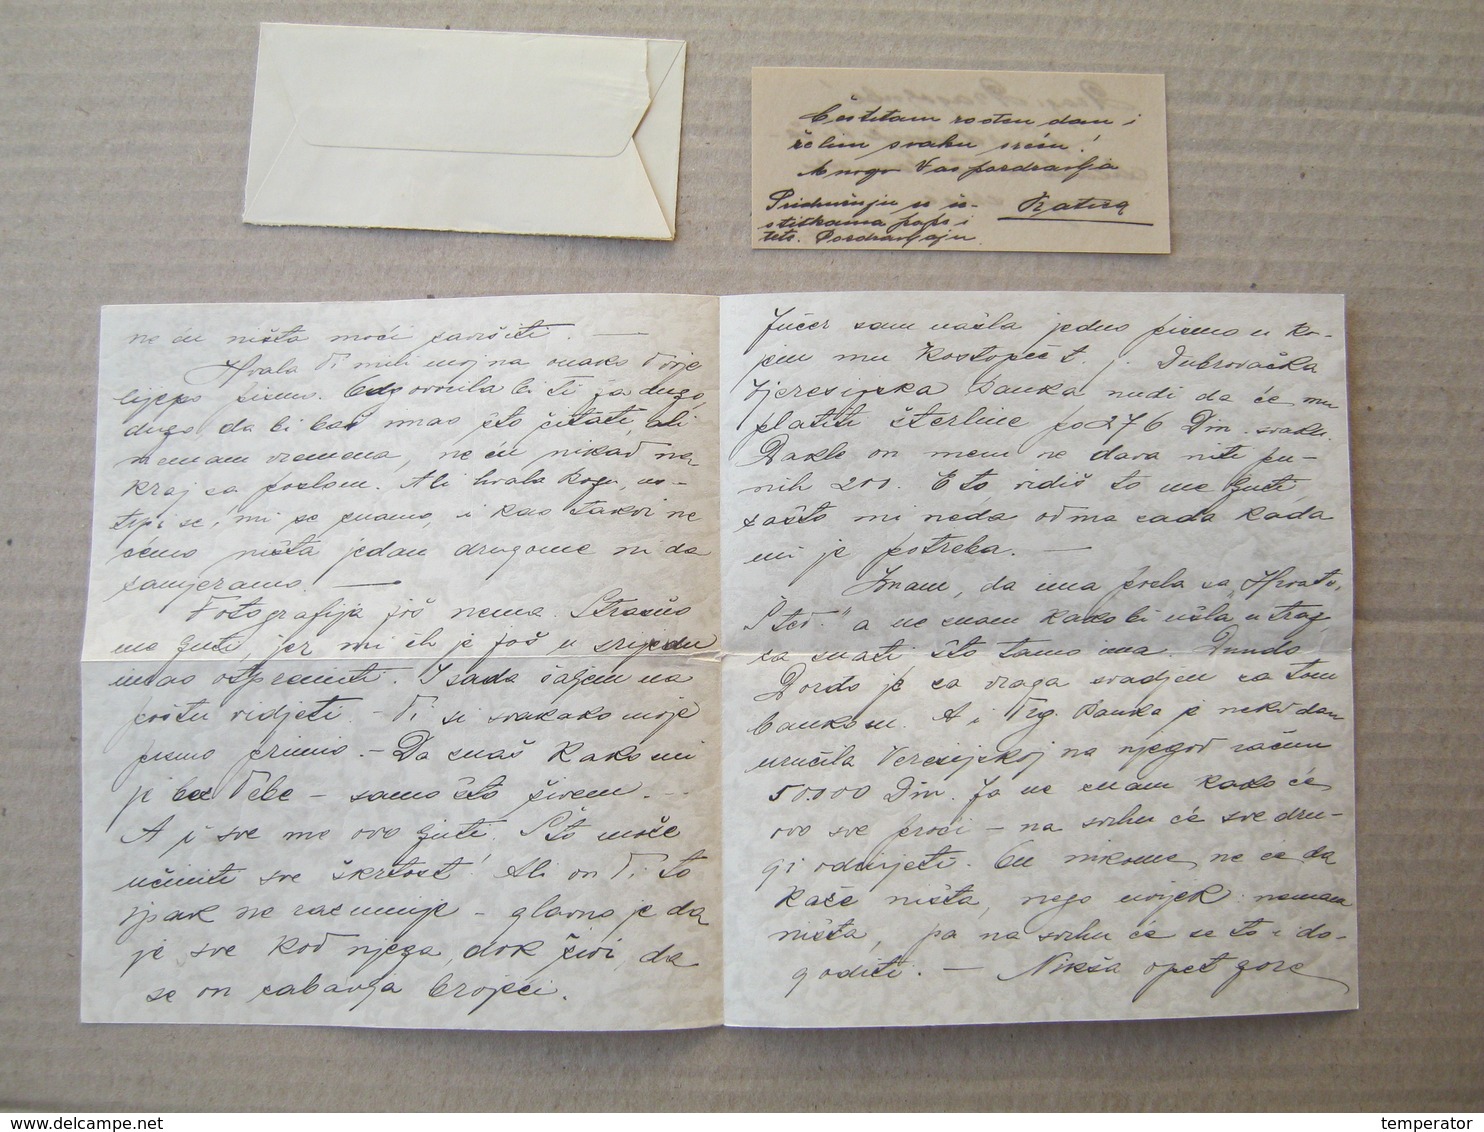 Čestitam rođen dan i
želim svaku sreću!
Mnogo Vas pozdravlja
Pridružuju se če-
stitkama papa i
teta. Pozdravljaju.
ne ću ništa moći završiti. —
Hvala Ti mili moj na onako Tvoje
lijepo pismo. Odgovorila bi Ti za dugo,
dugo da bi baš imao što čitati, ali
nemam vremena, ne ću nikad na
kraj sa poslom. Ali hvala Bogu, us-
trpi se, mi se znamo, i kao takvi ne
ćemo ništa jedan drugome ni da
zamjeramo. —
Fotografija još nema. Strašno
me ljuti, jer mi ih je još u srijedu
imao otpremiti. I sada šaljem na
poštu vidjeti. — Ti si svakako moje
pismo primio. — Da znaš kako mi
je bez Tebe — samo što živem. —
A i sve me ovo ljuti. Što može
učiniti sve škrtost! Ali on Ti to
ipak ne razumije — glavno je da
je sve kod njega, dok živi, da
se on zabavlja brojeći.
Jučer sam našla jedno pismo u ko-
jem mu Kostopeč t. j. Dubrovačka
Vjeresijska Banka nudi da će mu
platiti šterline po 276 Din. svaku.
Dakle on meni ne dava niti pu-
nih 200. Eto, vidiš to me ljuti,
zašto mi neda odma sada kada
mi je potreba. —
Znam, da ima posla sa „Hrvats.
Šted." a ne znam kako bi ušla u trag,
za znati što tamo ima. Dundo
Đordo je za vraga svadjen sa tom
bankom. A i Trg. Banka je neki dan
uručila Veresijskoj na njegov račun
50.000 Din. Ja ne znam kako će
ovo sve proći — na svrhu će sve dru-
gi odnijeti. On nikome ne će da
kaže ništa, nego uvijek: nemam
ništa, pa na svrhu će se to i do-
goditi. — Nikša opet gore
temperator